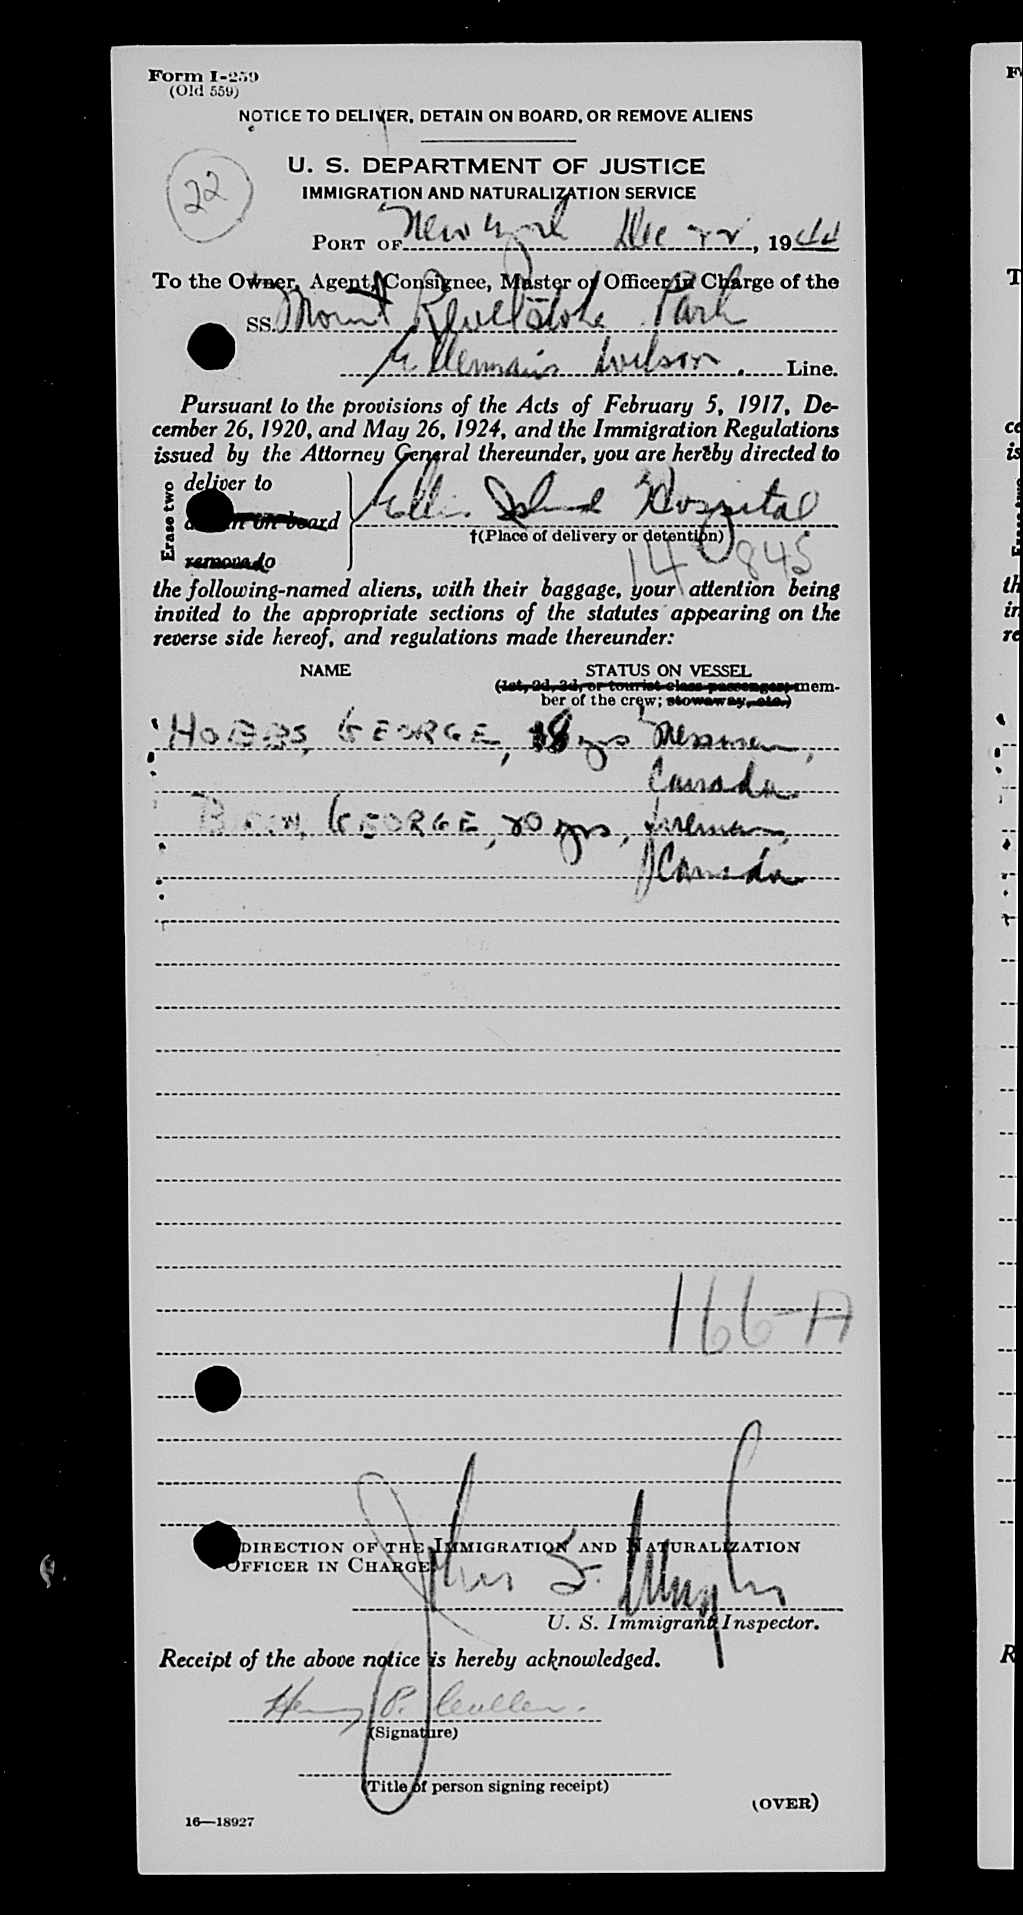 Form I-259
(Old 559)
NOTICE TO DELIVER, DETAIN ON BOARD, OR REMOVE ALIENS
U. S. DEPARTMENT OF JUSTICE
IMMIGRATION AND NATURALIZATION SERVICE
22
PORT OF New York Dec 22, 1944
To the Owner, Agent, Consignee, Master or Officer in Charge of the
SS. Mount Revelstoke Park
Ellermans Wilson Line.
Pursuant to the provisions of the Acts of February 5, 1917, De-
cember 26, 1920, and May 26, 1924, and the Immigration Regulations
issued by the Attorney General thereunder, you are hereby directed to
Erase two
deliver to
on board
remove to
Ellis Island Hospital
†(Place of delivery or detention)
845
the following-named aliens, with their baggage, your attention being
invited to the appropriate sections of the statutes appearing on the
reverse side hereof, and regulations made thereunder:
NAME STATUS ON VESSEL
(1st, 2d, 3d, or tourist class passenger; mem-
ber of the crew; stowaway, etc.)
HOBBS, GEORGE, 18 yrs Messman,
Canada
GEORGE, 20 yrs, fireman,
Canada
166-A
DIRECTION OF THE IMMIGRATION AND NATURALIZATION
OFFICER IN CHARGE
John S.
U. S. Immigrant Inspector.
Receipt of the above notice is hereby acknowledged.
Henry P. Cullen.
(Signature)
(Title of person signing receipt)
(OVER)
16—18927